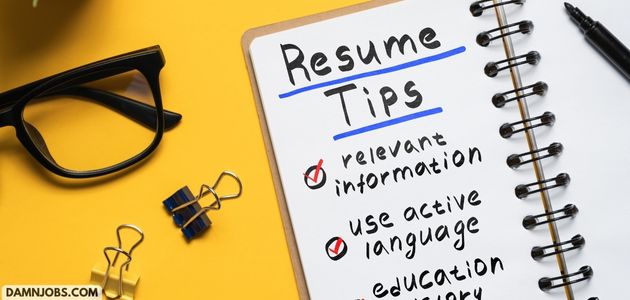 Resume
Tips
relevant
information
use active
language
education
DAMNJOBS.COM